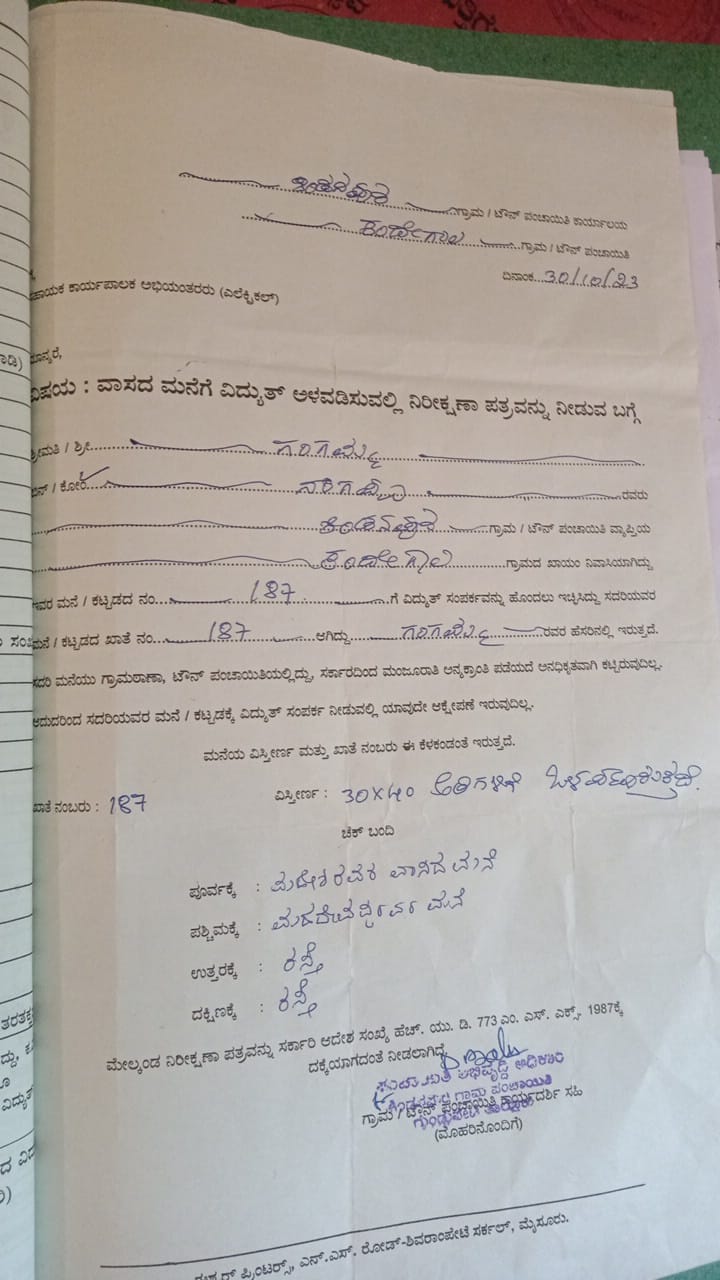 ಗ್ರಾಮ / ಟೌನ್ ಪಂಚಾಯಿತಿ ಕಾರ್ಯಾಲಯ
ಕಂದೇಗಾಲ ಗ್ರಾಮ / ಟೌನ್ ಪಂಚಾಯಿತಿ
ದಿನಾಂಕ...30/10/23
ಕಾರ್ಯಪಾಲಕ ಅಭಿಯಂತರರು (ಎಲೆಕ್ಟ್ರಿಕಲ್)
ವಿಷಯ : ವಾಸದ ಮನೆಗೆ ವಿದ್ಯುತ್ ಅಳವಡಿಸುವಲ್ಲಿ ನಿರೀಕ್ಷಣಾ ಪತ್ರವನ್ನು ನೀಡುವ ಬಗ್ಗೆ
ಶ್ರೀಮತಿ / ಶ್ರೀ
ಬಿನ್ / ಕೋಂ ರವರು
ಗ್ರಾಮ / ಟೌನ್ ಪಂಚಾಯಿತಿ ವ್ಯಾಪ್ತಿಯ
ಕಂದೇಗಾಲ ಗ್ರಾಮದ ಖಾಯಂ ನಿವಾಸಿಯಾಗಿದ್ದು
ಇವರ ಮನೆ / ಕಟ್ಟಡದ ನಂ. 187 ಗೆ ವಿದ್ಯುತ್ ಸಂಪರ್ಕವನ್ನು ಹೊಂದಲು ಇಚ್ಛಿಸಿದ್ದು ಸದರಿಯವರ
ಮನೆ / ಕಟ್ಟಡದ ಖಾತೆ ನಂ. 187 ಆಗಿದ್ದು ರವರ ಹೆಸರಿನಲ್ಲಿ ಇರುತ್ತದೆ.
ಸದರಿ ಮನೆಯು ಗ್ರಾಮಠಾಣಾ, ಟೌನ್ ಪಂಚಾಯಿತಿಯಲ್ಲಿದ್ದು, ಸರ್ಕಾರದಿಂದ ಮಂಜೂರಾತಿ ಅನ್ಯಕ್ರಾಂತಿ ಪಡೆಯದೆ ಅನಧಿಕೃತವಾಗಿ ಕಟ್ಟಿರುವುದಿಲ್ಲ.
ಆದುದರಿಂದ ಸದರಿಯವರ ಮನೆ / ಕಟ್ಟಡಕ್ಕೆ ವಿದ್ಯುತ್ ಸಂಪರ್ಕ ನೀಡುವಲ್ಲಿ ಯಾವುದೇ ಆಕ್ಷೇಪಣೆ ಇರುವುದಿಲ್ಲ.
ಮನೆಯ ವಿಸ್ತೀರ್ಣ ಮತ್ತು ಖಾತೆ ನಂಬರು ಈ ಕೆಳಕಂಡಂತೆ ಇರುತ್ತದೆ.
ಖಾತೆ ನಂಬರು : 187 ವಿಸ್ತೀರ್ಣ : 30x40 ಅಡಿಗಳಿಗೆ ಒಳಪಟ್ಟಿರುತ್ತದೆ.
ಚೆಕ್ ಬಂದಿ
ಪೂರ್ವಕ್ಕೆ : ವಾಸದ ಮನೆ
ಪಶ್ಚಿಮಕ್ಕೆ : ಮನೆ
ಉತ್ತರಕ್ಕೆ : ರಸ್ತೆ
ದಕ್ಷಿಣಕ್ಕೆ : ರಸ್ತೆ
ಮೇಲ್ಕಂಡ ನಿರೀಕ್ಷಣಾ ಪತ್ರವನ್ನು ಸರ್ಕಾರಿ ಆದೇಶ ಸಂಖ್ಯೆ ಹೆಚ್. ಯು. ಡಿ. 773 ಎಂ. ಎಸ್. ಎಕ್ಸ್. 1987ಕ್ಕೆ
ದಕ್ಕೆಯಾಗದಂತೆ ನೀಡಲಾಗಿದೆ
ಪಂಚಾಯಿತಿ ಅಭಿವೃದ್ಧಿ ಅಧಿಕಾರಿ
ಗ್ರಾಮ ಪಂಚಾಯಿತಿ
ಗ್ರಾಮ / ಟೌನ್ ಪಂಚಾಯಿತಿ ಕಾರ್ಯದರ್ಶಿ ಸಹಿ
(ಮೊಹರಿನೊಂದಿಗೆ)
ಪ್ರಿಂಟರ್ಸ್, ಎನ್.ಎಸ್. ರೋಡ್-ಶಿವರಾಂಪೇಟೆ ಸರ್ಕಲ್, ಮೈಸೂರು.